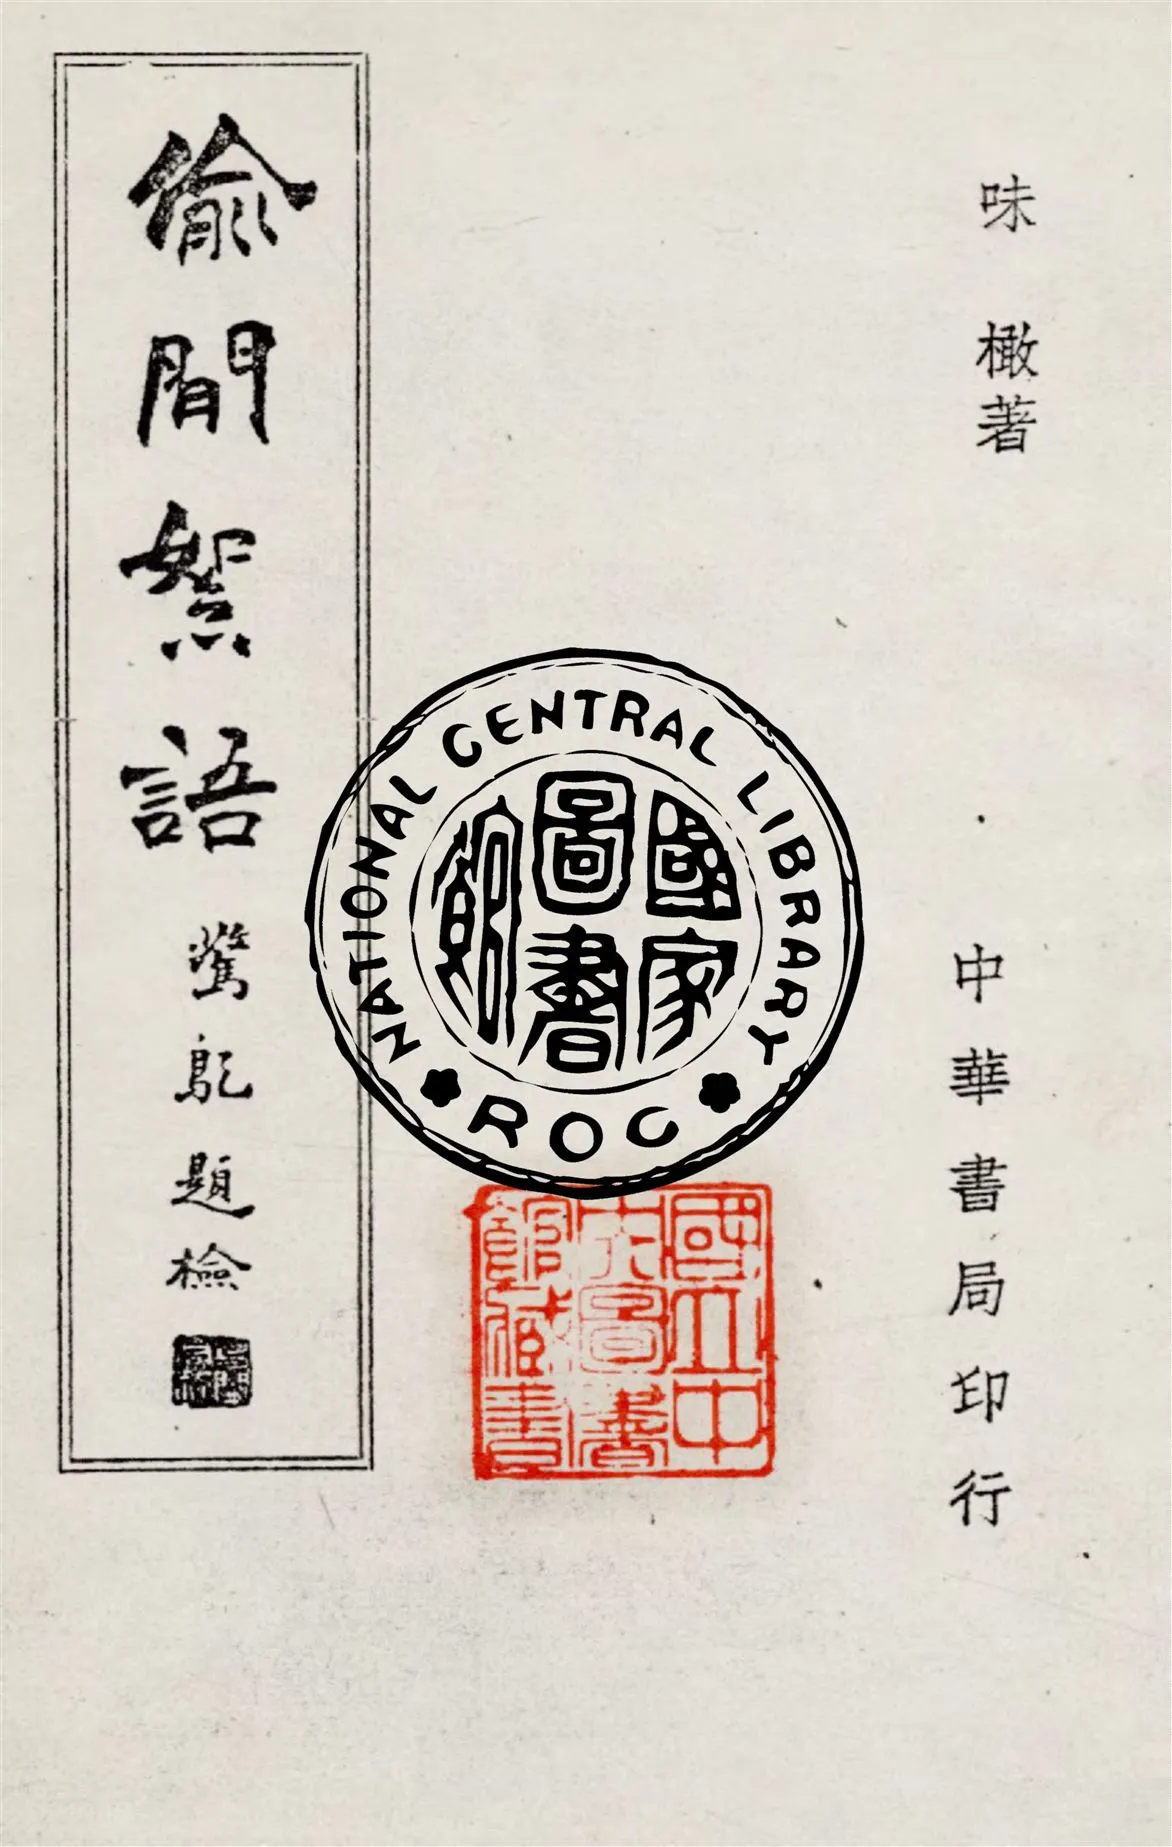 味橄著
中華書局印行
偷閒絮語
題檢
NATIONAL CENTRAL LIBRARY
ROC
國家
圖書
館
國立中
央圖書
館藏書